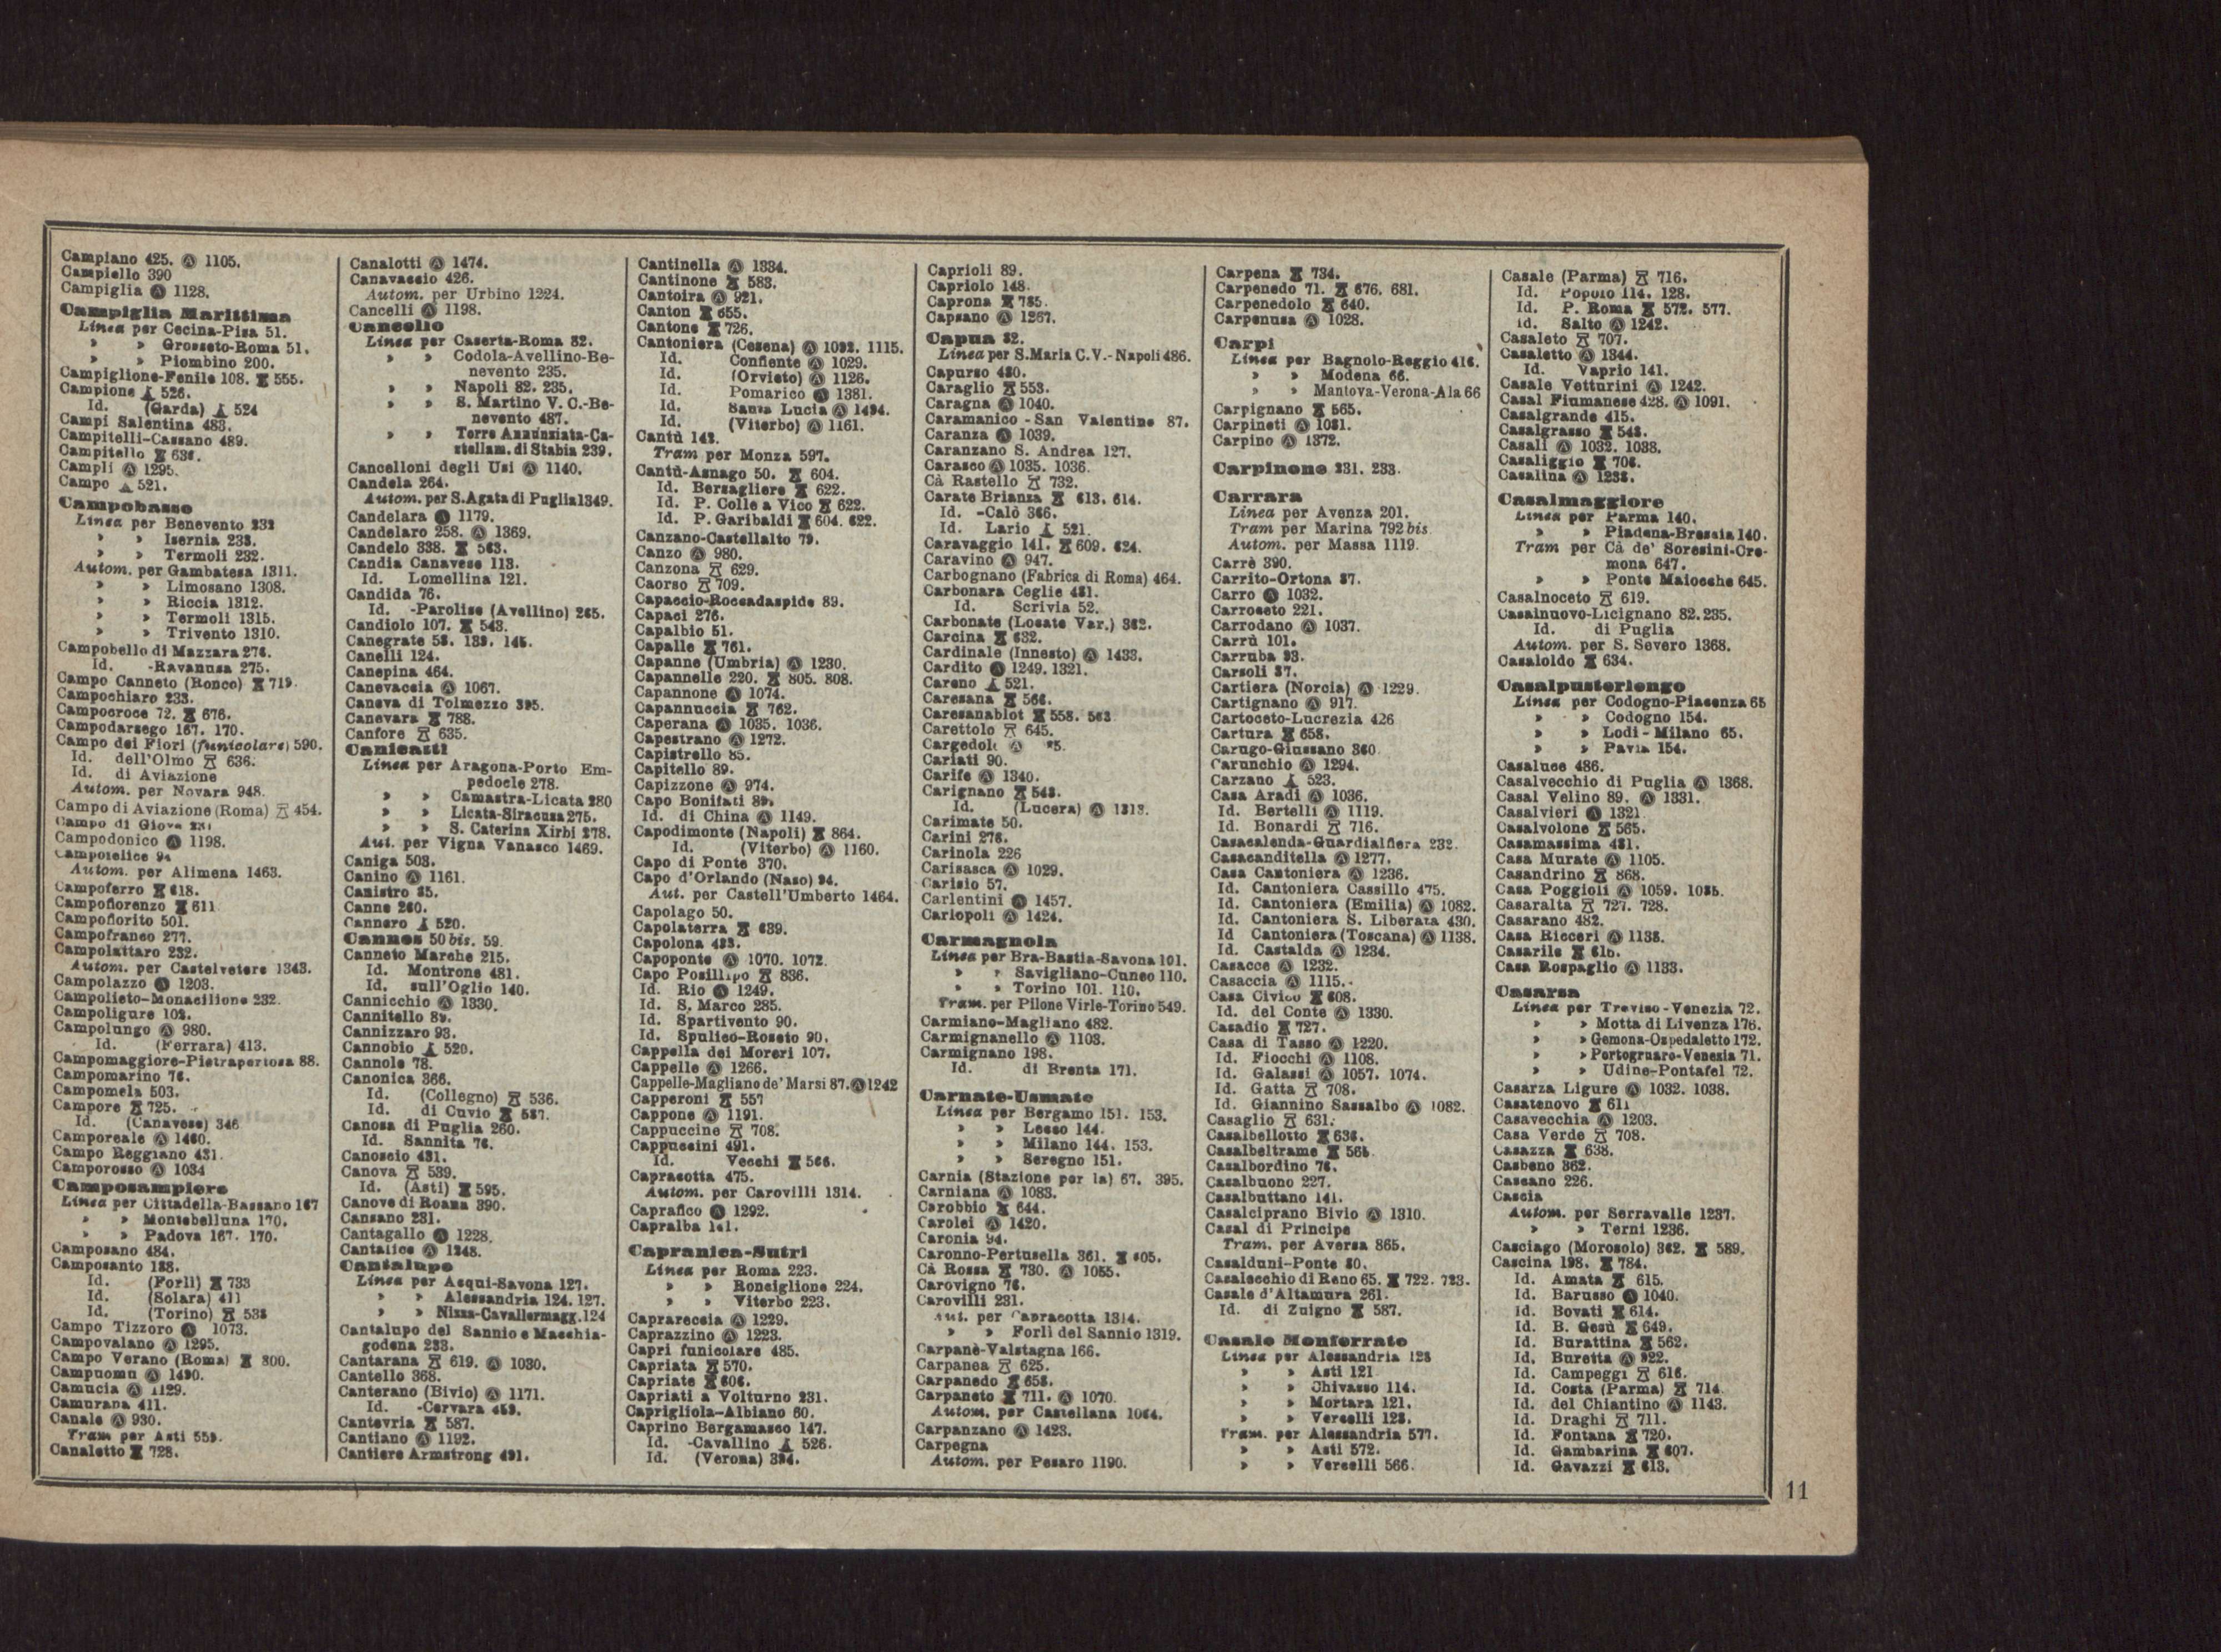 Campiano 425. Ⓐ 1105.
Campiello 390
Campiglia Ⓐ 1128.
Campiglia Marittima
Linea per Cecina-Pisa 51.
» » Grosseto-Roma 51.
» » Piombino 200.
Campiglione-Fenile 108. 555.
Campione 526.
Id. (Garda) 524
Campi Salentina 483.
Campitelli-Cassano 489.
Campitello
Campli Ⓐ 1295.
Campo 521.
Campobasso
Linea per Benevento 232
» » Isernia 233.
» » Termoli 232.
Autom. per Gambatesa 1311.
» » Limosano 1308.
» » Riccia 1312.
» » Termoli 1315.
» » Trivento 1310.
Campobello di Mazzara
Id. -Ravanusa 275.
Campo Canneto (Ronco) 719.
Campochiaro 233.
Campocroce 72. 676.
Campodarsego 167. 170.
Campo dei Fiori (funicolare) 590.
Id. dell'Olmo 636.
Id. di Aviazione
Autom. per Novara 948.
Campo di Aviazione (Roma) 454.
Campo di Giove 231
Campodonico Ⓐ 1198.
Campofelice 94
Autom. per Alimena 1463.
Campoferro 618.
Campofiorenzo 611
Campofiorito 501.
Campofranco 277.
Campolattaro 232.
Autom. per Castelvetere 1343.
Campolazzo Ⓐ 1203.
Campolieto-Monacilione 232.
Campoligure 102.
Campolungo Ⓐ 980.
Id. (Ferrara) 413.
Campomaggiore-Pietrapertosa 88.
Campomarino 76.
Campomela 503.
Campore 725.
Id. (Canavese) 346
Camporeale Ⓐ 1460.
Campo Reggiano 431.
Camporosso Ⓐ 1034
Camposampiero
Linea per Cittadella-Bassano 167
» » Montebelluna 170.
» » Padova 167. 170.
Camposano 484.
Camposanto 188.
Id. (Forlì) 733
Id. (Solara) 411
Id. (Torino) 538
Campo Tizzoro Ⓐ 1073.
Campovalano Ⓐ 1295.
Campo Verano (Roma) 800.
Campuomu Ⓐ 1490.
Camucia Ⓐ 1129.
Camurana 411.
Canale Ⓐ 930.
Tram per Asti 559.
Canaletto 728.
Canalotti Ⓐ 1474.
Canavaccio 426.
Autom. per Urbino 1224.
Cancelli Ⓐ 1198.
Cancello
Linea per Caserta-Roma 82.
» » Codola-Avellino-Be-
nevento 235.
» » Napoli 82. 235.
» » S. Martino V. C.-Be-
nevento 487.
» » Torre Annunziata-Ca-
stellam. di Stabia 239.
Cancelloni degli Usi Ⓐ 1140.
Candela 264.
Autom. per S. Agata di Puglia 1349.
Candelara Ⓐ 1179.
Candelaro 258. Ⓐ 1369.
Candelo 338. 563.
Candia Canavese 113.
Id. Lomellina 121.
Candida 76.
Id. -Parolise (Avellino) 265.
Candiolo 107. 543.
Canegrate 58. 139. 145.
Canelli 124.
Canepina 464.
Canevaccia Ⓐ 1067.
Caneva di Tolmezzo 395.
Canevara 788.
Canfore 635.
Canicattì
Linea per Aragona-Porto Em-
pedocle 278.
» » Camastra-Licata 280
» » Licata-Siracusa 275.
» » S. Caterina Xirbi 278.
Aut. per Vigna Vanasco 1469.
Caniga 503.
Canino Ⓐ 1161.
Canistro 85.
Canne 260.
Cannero 520.
Cannes 50 bis. 59.
Canneto Marche 215.
Id. Montrone 481.
Id. sull'Oglio 140.
Cannicchio Ⓐ 1330.
Cannitello 89.
Cannizzaro 93.
Cannobio 520.
Cannole 78.
Canonica 366.
Id. (Collegno) 536.
Id. di Cuvio 587.
Canosa di Puglia 260.
Id. Sannita 76.
Canoscio 431.
Canova 539.
Id. (Asti) 595.
Canove di Roana 390.
Cansano 231.
Cantagallo Ⓐ 1228.
Cantalice Ⓐ 1248.
Cantalupo
Linea per Acqui-Savona 127.
» » Alessandria 124. 127.
» » Nizza-Cavallermagg. 124
Cantalupo del Sannio e Macchia-
godena 233.
Cantarana 619. Ⓐ 1030.
Cantello 368.
Canterano (Bivio) Ⓐ 1171.
Id. -Cervara 459.
Cantevria 587.
Cantiano Ⓐ 1192.
Cantiere Armstrong 491.
Cantinella Ⓐ 1334.
Cantinone 583.
Cantoira Ⓐ 921.
Canton 655.
Cantone 726.
Cantoniera (Cesena) Ⓐ 1092. 1115.
Id. Confiente Ⓐ 1029.
Id. (Orvieto) Ⓐ 1126.
Id. Pomarico Ⓐ 1381.
Id. Santa Lucia Ⓐ 1494.
Id. (Viterbo) Ⓐ 1161.
Cantù 143.
Tram per Monza 597.
Cantù-Asnago 50. 604.
Id. Bersagliere 622.
Id. P. Colle a Vico 622.
Id. P. Garibaldi 604. 622.
Canzano-Castellalto 79.
Canzo Ⓐ 980.
Canzona 629.
Caorso 709.
Capaccio-Roccadaspide 89.
Capaci 276.
Capalbio 51.
Capalle 761.
Capanne (Umbria) Ⓐ 1230.
Capannelle 220. 805. 808.
Capannone Ⓐ 1074.
Capannuccia 762.
Caperana Ⓐ 1035. 1036.
Capestrano Ⓐ 1272.
Capistrello 85.
Capitello 89.
Capizzone Ⓐ 974.
Capo Bonifati 89.
Id. di China Ⓐ 1149.
Capodimonte (Napoli) 864.
Id. (Viterbo) Ⓐ 1160.
Capo di Ponte 370.
Capo d'Orlando (Naso) 94.
Aut. per Castell'Umberto 1464.
Capolago 50.
Capolaterra 639.
Capolona 433.
Capoponte Ⓐ 1070. 1072.
Capo Posillipo 836.
Id. Rio Ⓐ 1249.
Id. S. Marco 285.
Id. Spartivento 90.
Id. Spulico-Roseto 90.
Cappella dei Moreri 107.
Cappelle Ⓐ 1266.
Cappelle-Magliano de' Marsi 87. Ⓐ 1242
Capperoni 557
Cappone Ⓐ 1191.
Cappuccine 708.
Cappuccini 491.
Id. Vecchi 566.
Capracotta 475.
Autom. per Carovilli 1314.
Caprafico Ⓐ 1292.
Capralba 141.
Capranica-Sutri
Linea per Roma 223.
» » Ronciglione 224.
» » Viterbo 223.
Caprareccia Ⓐ 1229.
Caprazzino Ⓐ 1223.
Capri funicolare 485.
Capriata 570.
Capriate 606.
Capriati a Volturno 231.
Caprigliola-Albiano 60.
Caprino Bergamasco 147.
Id. -Cavallino 526.
Id. (Verona) 394.
Caprioli 89.
Capriolo 148.
Caprona 785.
Capsano Ⓐ 1267.
Capua 82.
Linea per S. Maria C. V.-Napoli 486.
Capurso 480.
Caraglio 553.
Caragna Ⓐ 1040.
Caramanico-San Valentino 87.
Caranza Ⓐ 1039.
Caranzano S. Andrea 127.
Carasco Ⓐ 1035. 1036.
Cà Rastello 732.
Carate Brianza 613. 614.
Id. -Calò 366.
Id. Lario 521.
Caravaggio 141. 609. 624.
Caravino Ⓐ 947.
Carbognano (Fabrica di Roma) 464.
Carbonara Ceglie 481.
Id. Scrivia 52.
Carbonate (Locate Var.) 362.
Carcina 632.
Cardinale (Innesto) Ⓐ 1433.
Cardito Ⓐ 1249. 1321.
Careno 521.
Caresana 566.
Caresanablot 558. 563
Carettolo 645.
Cariati 90.
Carife Ⓐ 1340.
Carignano 543.
Id. (Lucera) Ⓐ 1313.
Carimate 50.
Carini 276.
Carinola 226
Carisasca Ⓐ 1029.
Carisio 57.
Carlentini Ⓐ 1457.
Carlopoli Ⓐ 1424.
Carmagnola
Linea per Bra-Bastia-Savona 101.
» » Savigliano-Cuneo 110.
» » Torino 101. 110.
Tram. per Pilone Virle-Torino 549.
Carmiano-Magliano 482.
Carmignanello Ⓐ 1103.
Carmignano 198.
Id. di Brenta 171.
Carnate-Usmate
Linea per Bergamo 151. 153.
» » Lecco 144.
» » Milano 144. 153.
» » Seregno 151.
Carnia (Stazione per la) 67. 395.
Carniana Ⓐ 1083.
Carobbio 644.
Carolei Ⓐ 1420.
Caronia 94.
Caronno-Pertusella 361. 605.
Cà Rossa 730. Ⓐ 1055.
Carovigno 76.
Carovilli 231.
Aut. per Capracotta 1314.
» » Forlì del Sannio 1319.
Carpanè-Valstagna 166.
Carpanea 625.
Carpanedo 658.
Carpaneto 711. Ⓐ 1070.
Autom. per Castellana 1064.
Carpanzano Ⓐ 1423.
Carpegna
Autom. per Pesaro 1190.
Carpena 734.
Carpenedo 71. 676. 681.
Carpenedolo 640.
Carpenusa Ⓐ 1028.
Carpi
Linea per Bagnolo-Reggio 416.
» » Modena 66.
» » Mantova-Verona-Ala 66
Carpignano 565.
Carpineti Ⓐ 1081.
Carpino Ⓐ 1372.
Carpinone 231. 233.
Carrara
Linea per Avenza 201.
Tram per Marina 792 bis
Autom. per Massa 1119.
Carrè 390.
Carrito-Ortona 87.
Carro Ⓐ 1032.
Carroceto 221.
Carrodano Ⓐ 1037.
Carrù 101.
Carruba 93.
Carsoli 87.
Cartiera (Norcia) Ⓐ 1229.
Cartignano Ⓐ 917.
Cartoceto-Lucrezia 426
Cartura 658.
Carugo-Giussano 360
Carunchio Ⓐ 1294.
Carzano 523.
Casa Aradi Ⓐ 1036.
Id. Bertelli Ⓐ 1119.
Id. Bonardi 716.
Casacalenda-Guardialfiera 232.
Casacanditella Ⓐ 1277.
Casa Cantoniera Ⓐ 1236.
Id. Cantoniera Cassillo 475.
Id. Cantoniera (Emilia) Ⓐ 1082.
Id. Cantoniera S. Liberata 430.
Id Cantoniera (Toscana) Ⓐ 1138.
Id. Castalda Ⓐ 1234.
Casacce Ⓐ 1232.
Casaccia Ⓐ 1115.
Casa Civico 608.
Id. del Conte Ⓐ 1330.
Casadio 727.
Casa di Tasso Ⓐ 1220.
Id. Fiocchi Ⓐ 1108.
Id. Galassi Ⓐ 1057. 1074.
Id. Gatta 708.
Id. Giannino Sassalbo Ⓐ 1082.
Casaglio 631.
Casalbellotto 636.
Casalbeltrame 565.
Casalbordino 76.
Casalbuono 227.
Casalbuttano 141.
Casalciprano Bivio Ⓐ 1310.
Casal di Principe
Tram. per Aversa 865.
Casalduni-Ponte 80.
Casalecchio di Reno 65. 722. 723.
Casale d'Altamura 261.
Id. di Zuigno 587.
Casale Monferrato
Linea per Alessandria 128
» » Asti 121
» » Chivasso 114.
» » Mortara 121.
» » Vercelli 128.
Tram. per Alessandria 577.
» » Asti 572.
» » Vercelli 566.
Casale (Parma) 716.
Id. Popolo 114. 128.
Id. P. Roma 572. 577.
Id. Salto Ⓐ 1242.
Casaleto 707.
Casaletto Ⓐ 1344.
Id. Vaprio 141.
Casale Vetturini Ⓐ 1242.
Casal Fiumanese 428. Ⓐ 1091.
Casalgrande 415.
Casalgrasso 543.
Casali Ⓐ 1032. 1038.
Casaliggio 706.
Casalina Ⓐ 1238.
Casalmaggiore
Linea per Parma 140.
» » Piadena-Brescia 140.
Tram per Cà de' Soresini-Cre-
mona 647.
» » Ponte Maiocche 645.
Casalnoceto 619.
Casalnuovo-Licignano 82. 235.
Id. di Puglia
Autom. per S. Severo 1368.
Casaloldo 634.
Casalpusterlengo
Linea per Codogno-Piacenza 65
» » Codogno 154.
» » Lodi-Milano 65.
» » Pavia 154.
Casaluce 486.
Casalvecchio di Puglia Ⓐ 1368.
Casal Velino 89. Ⓐ 1331.
Casalvieri Ⓐ 1321
Casalvolone 565.
Casamassima 481.
Casa Murate Ⓐ 1105.
Casandrino 868.
Casa Poggioli Ⓐ 1059. 1085.
Casaralta 727. 728.
Casarano 482.
Casa Ricceri Ⓐ 1138.
Casarile 615.
Casa Rospaglio Ⓐ 1133.
Casarsa
Linea per Treviso-Venezia 72.
» » Motta di Livenza 176.
» » Gemona-Ospedaletto 172.
» » Portogruaro-Venezia 71.
» » Udine-Pontafel 72.
Casarza Ligure Ⓐ 1032. 1038.
Casatenovo 611
Casavecchia Ⓐ 1203.
Casa Verde 708.
Casazza 638.
Casbeno 362.
Cascano 226.
Cascia
Autom. per Serravalle 1237.
» » Terni 1236.
Casciago (Morosolo) 362. 589.
Cascina 198. 784.
Id. Amata 615.
Id. Barusso Ⓐ 1040.
Id. Bovati 614.
Id. B. Gesù 649.
Id. Burattina 562.
Id. Buretta Ⓐ 922.
Id. Campeggi 616.
Id. Costa (Parma) 714
Id. del Chiantino Ⓐ 1143.
Id. Draghi 711.
Id. Fontana 720.
Id. Gambarina 607.
Id. Gavazzi 613.
11